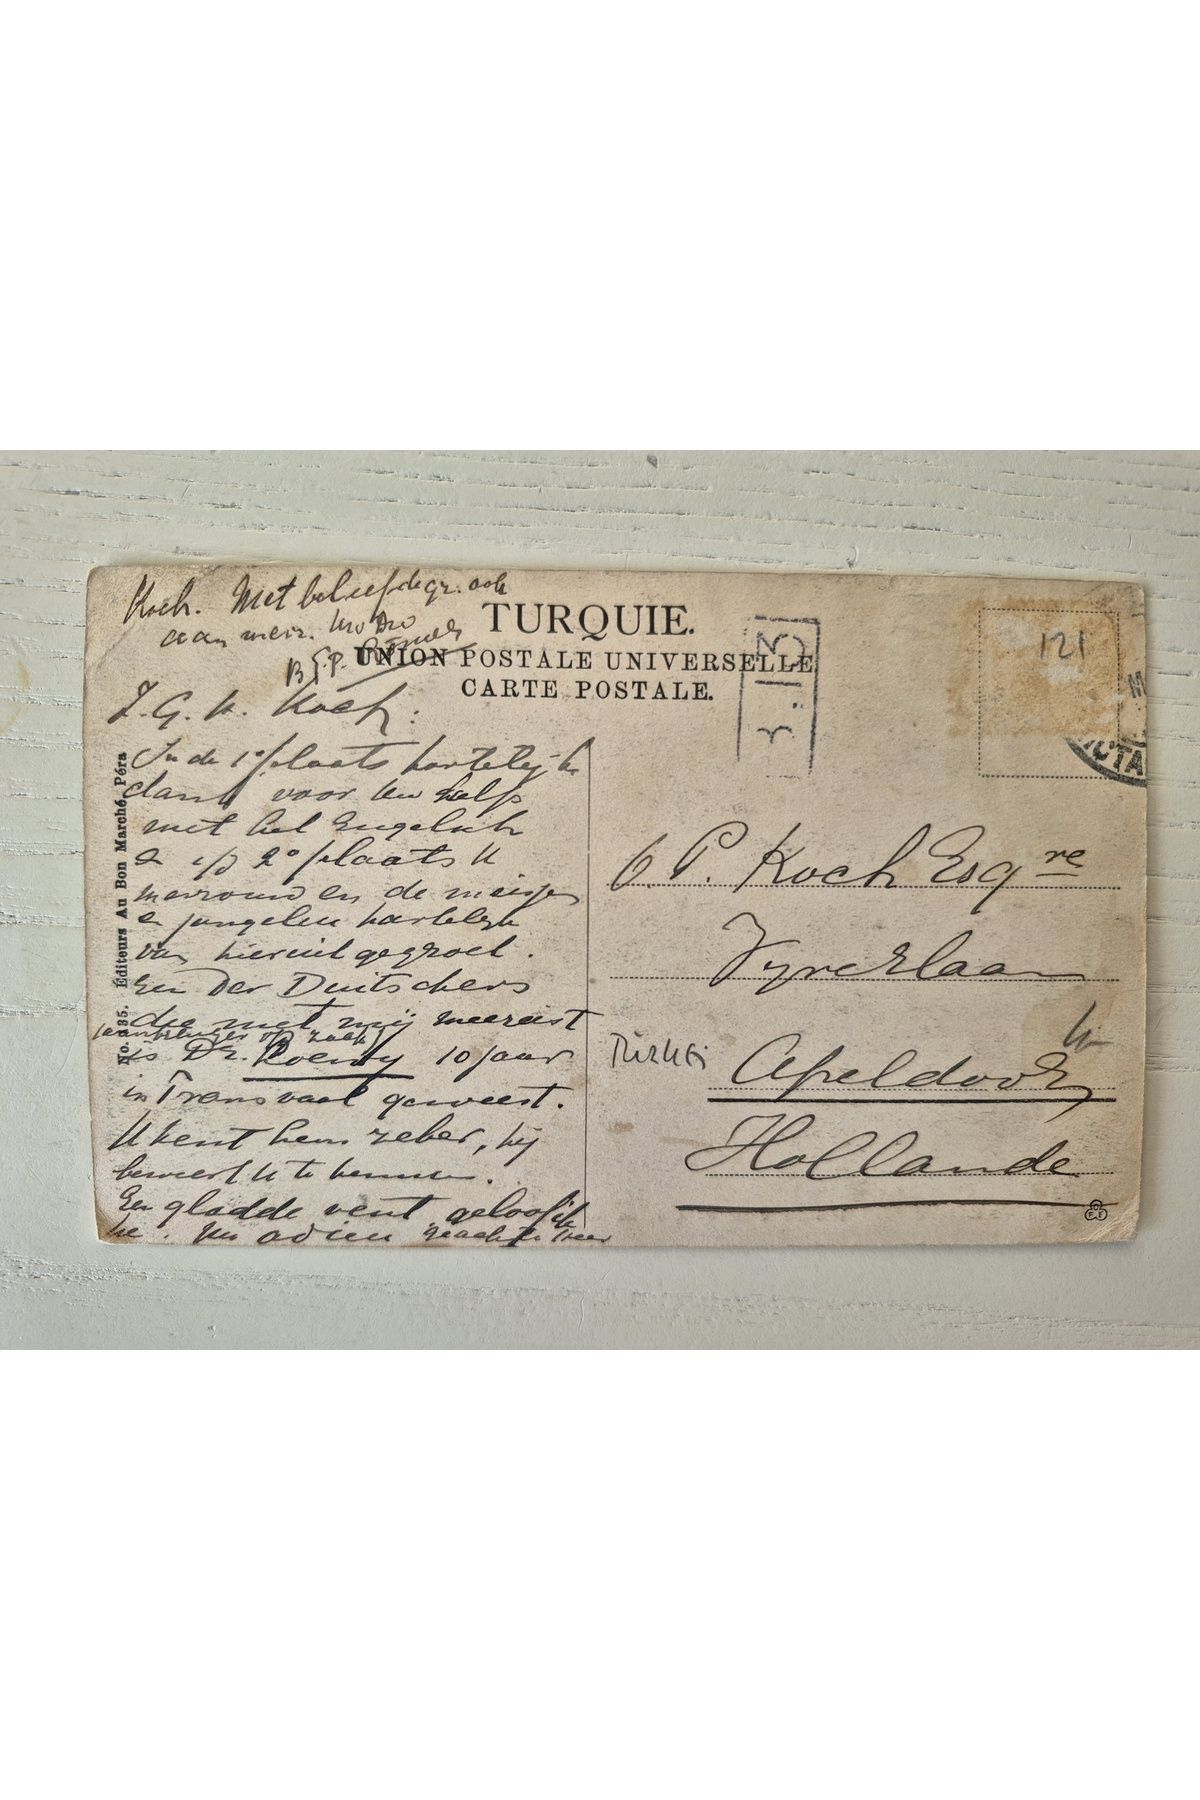 TURQUIE.
UNION POSTALE UNIVERSELLE
CARTE POSTALE.
No. 335. Éditeurs Au Bon Marché, Péra
121
3.13
Koch. Met beleefde gr. ook
aan mevr.
Koch.
In de 1e plaats hartelijk
dank voor Uw help
met het Engelsch
& op 2e plaats U
mevrouw en de meisjes
& jongelui hartelijk
van hieruit gegroet.
Een Der Duitschers
die met mij meereist
is Dr. 10 jaar
in Transvaal geweest.
U kent hem zeker, hij
beweert U te kennen.
Een gladde vent geloof ik
adieu
P. Koch Esqre
Apeldoorn
Hollande